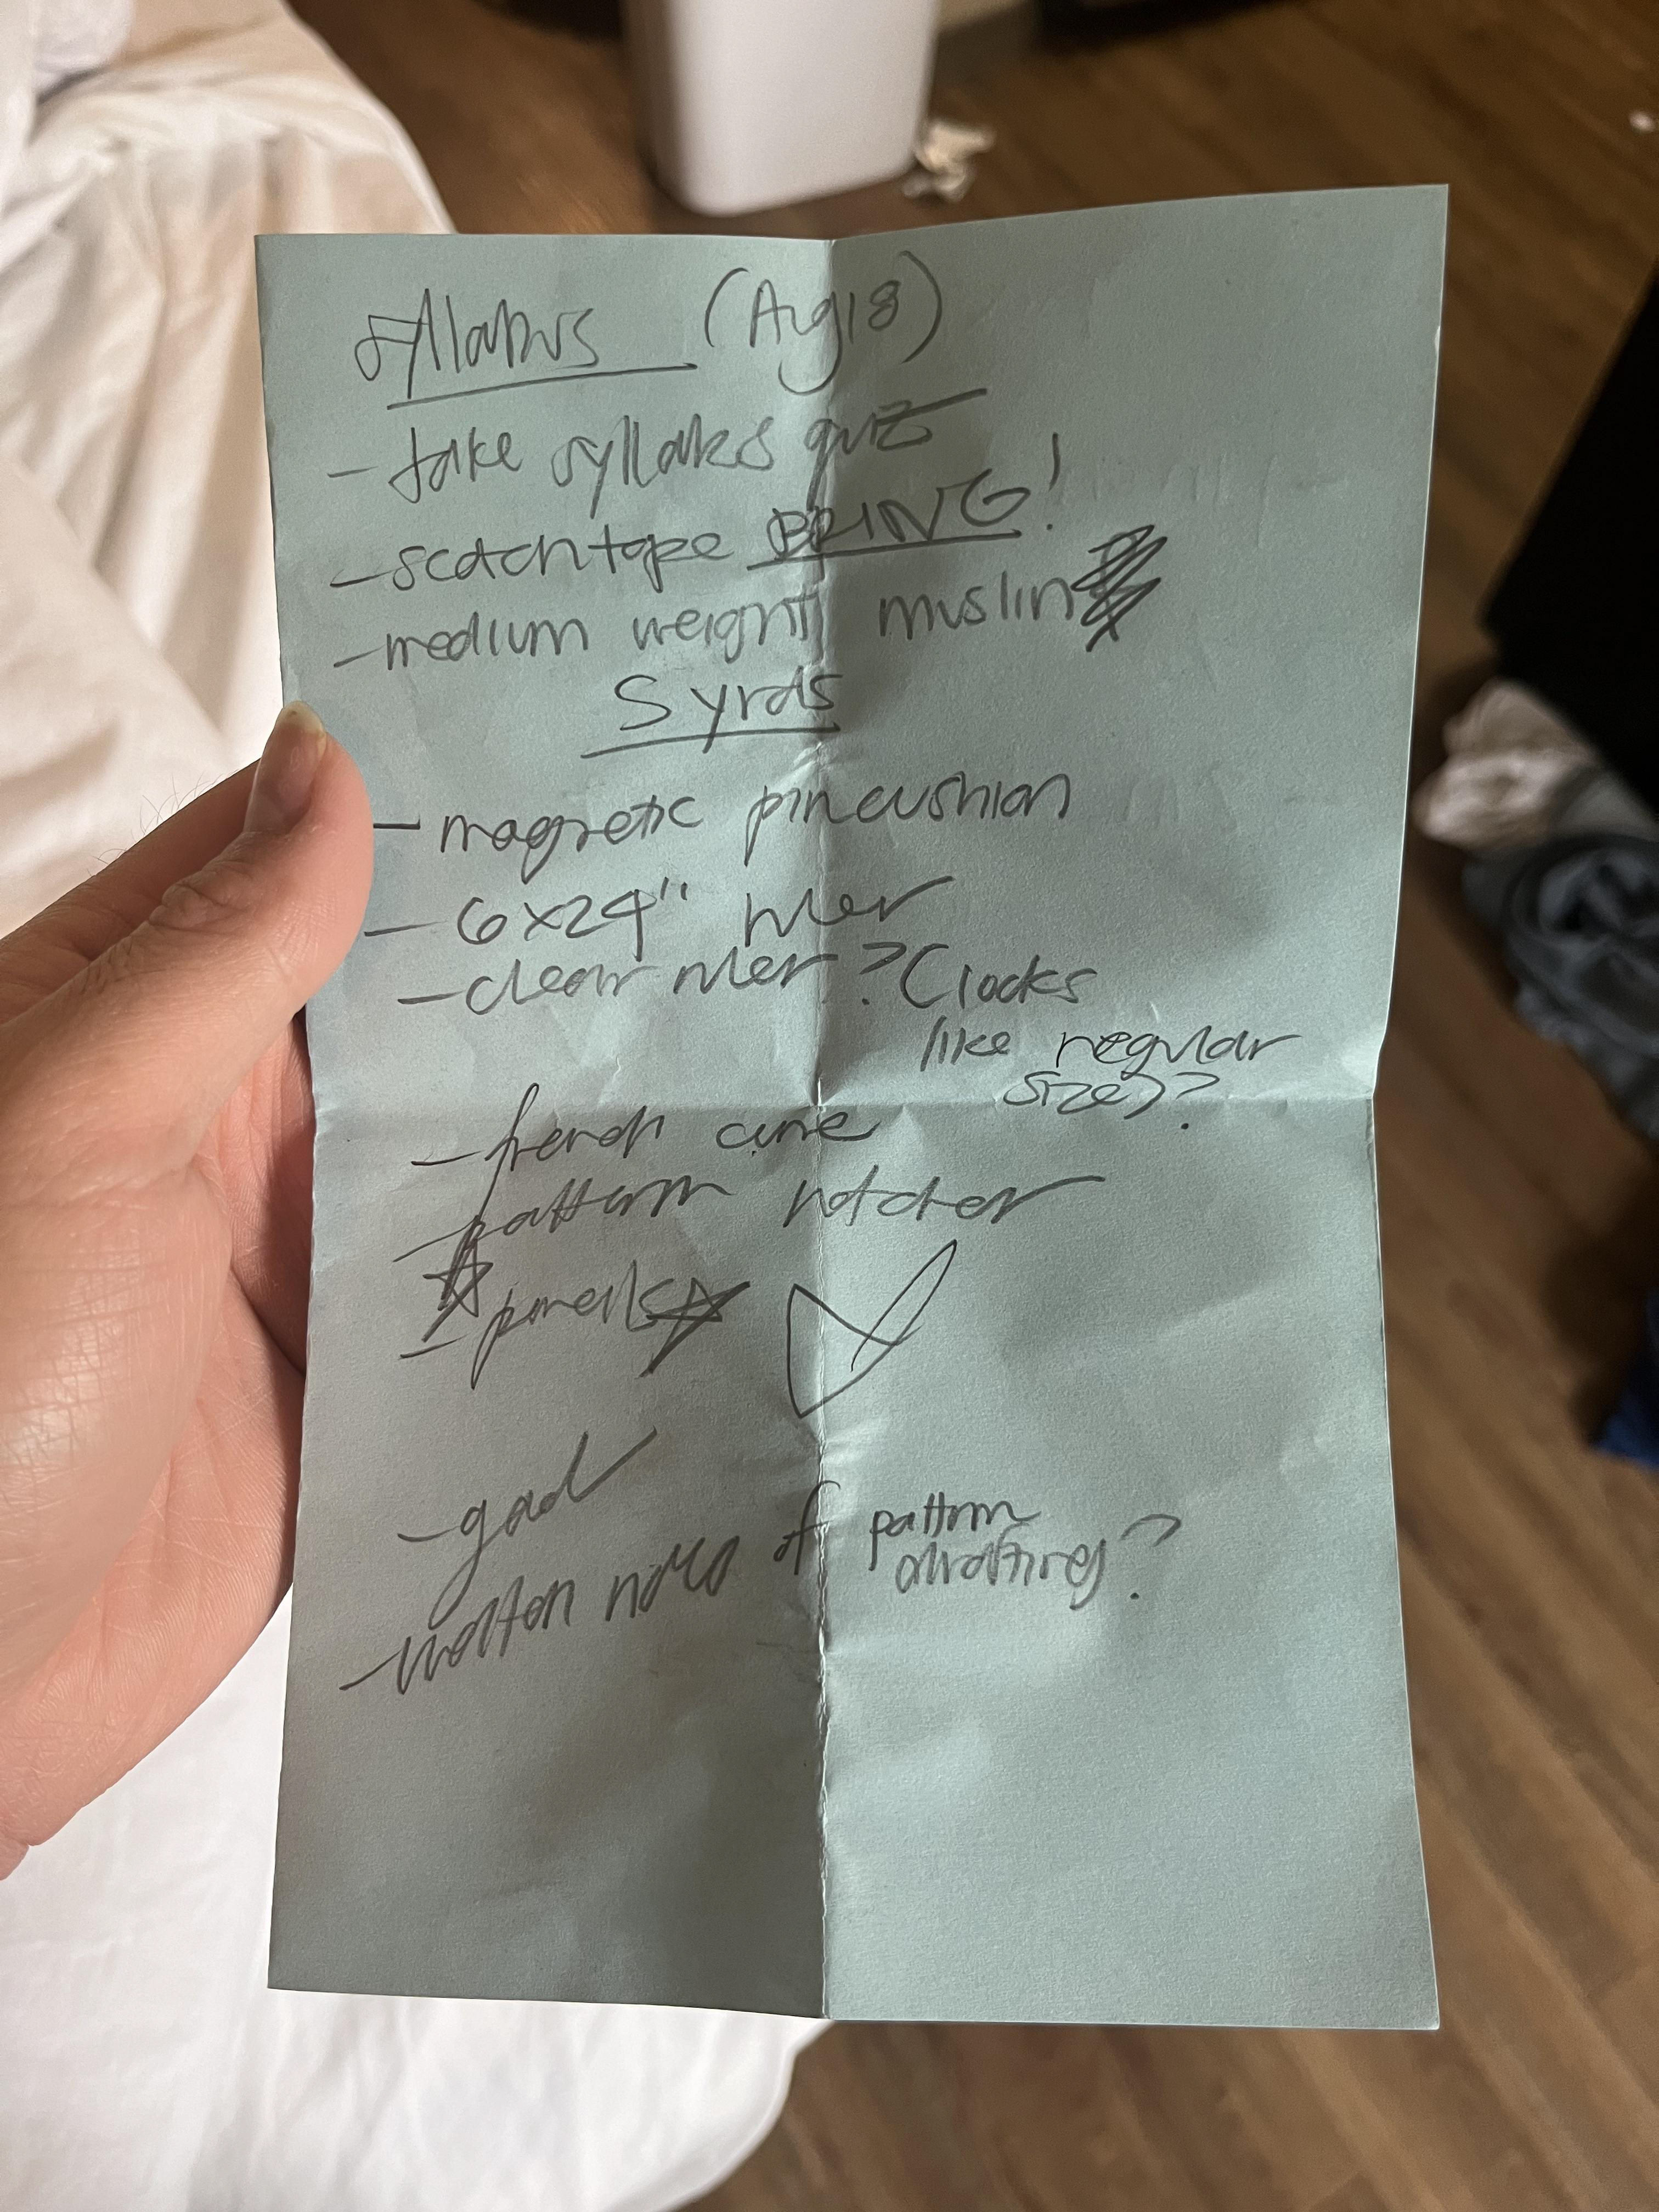 syllabus (Aug 18)
- take syllabus quiz
- scotch tape BRING!
- medium weight muslin
5 yrds
- magnetic pincushion
- 6x24" ruler
- clear ruler? (looks
like regular
size)?
- french curve
- pattern notcher
- pencils
- 
- written notes of pattern
draftings?